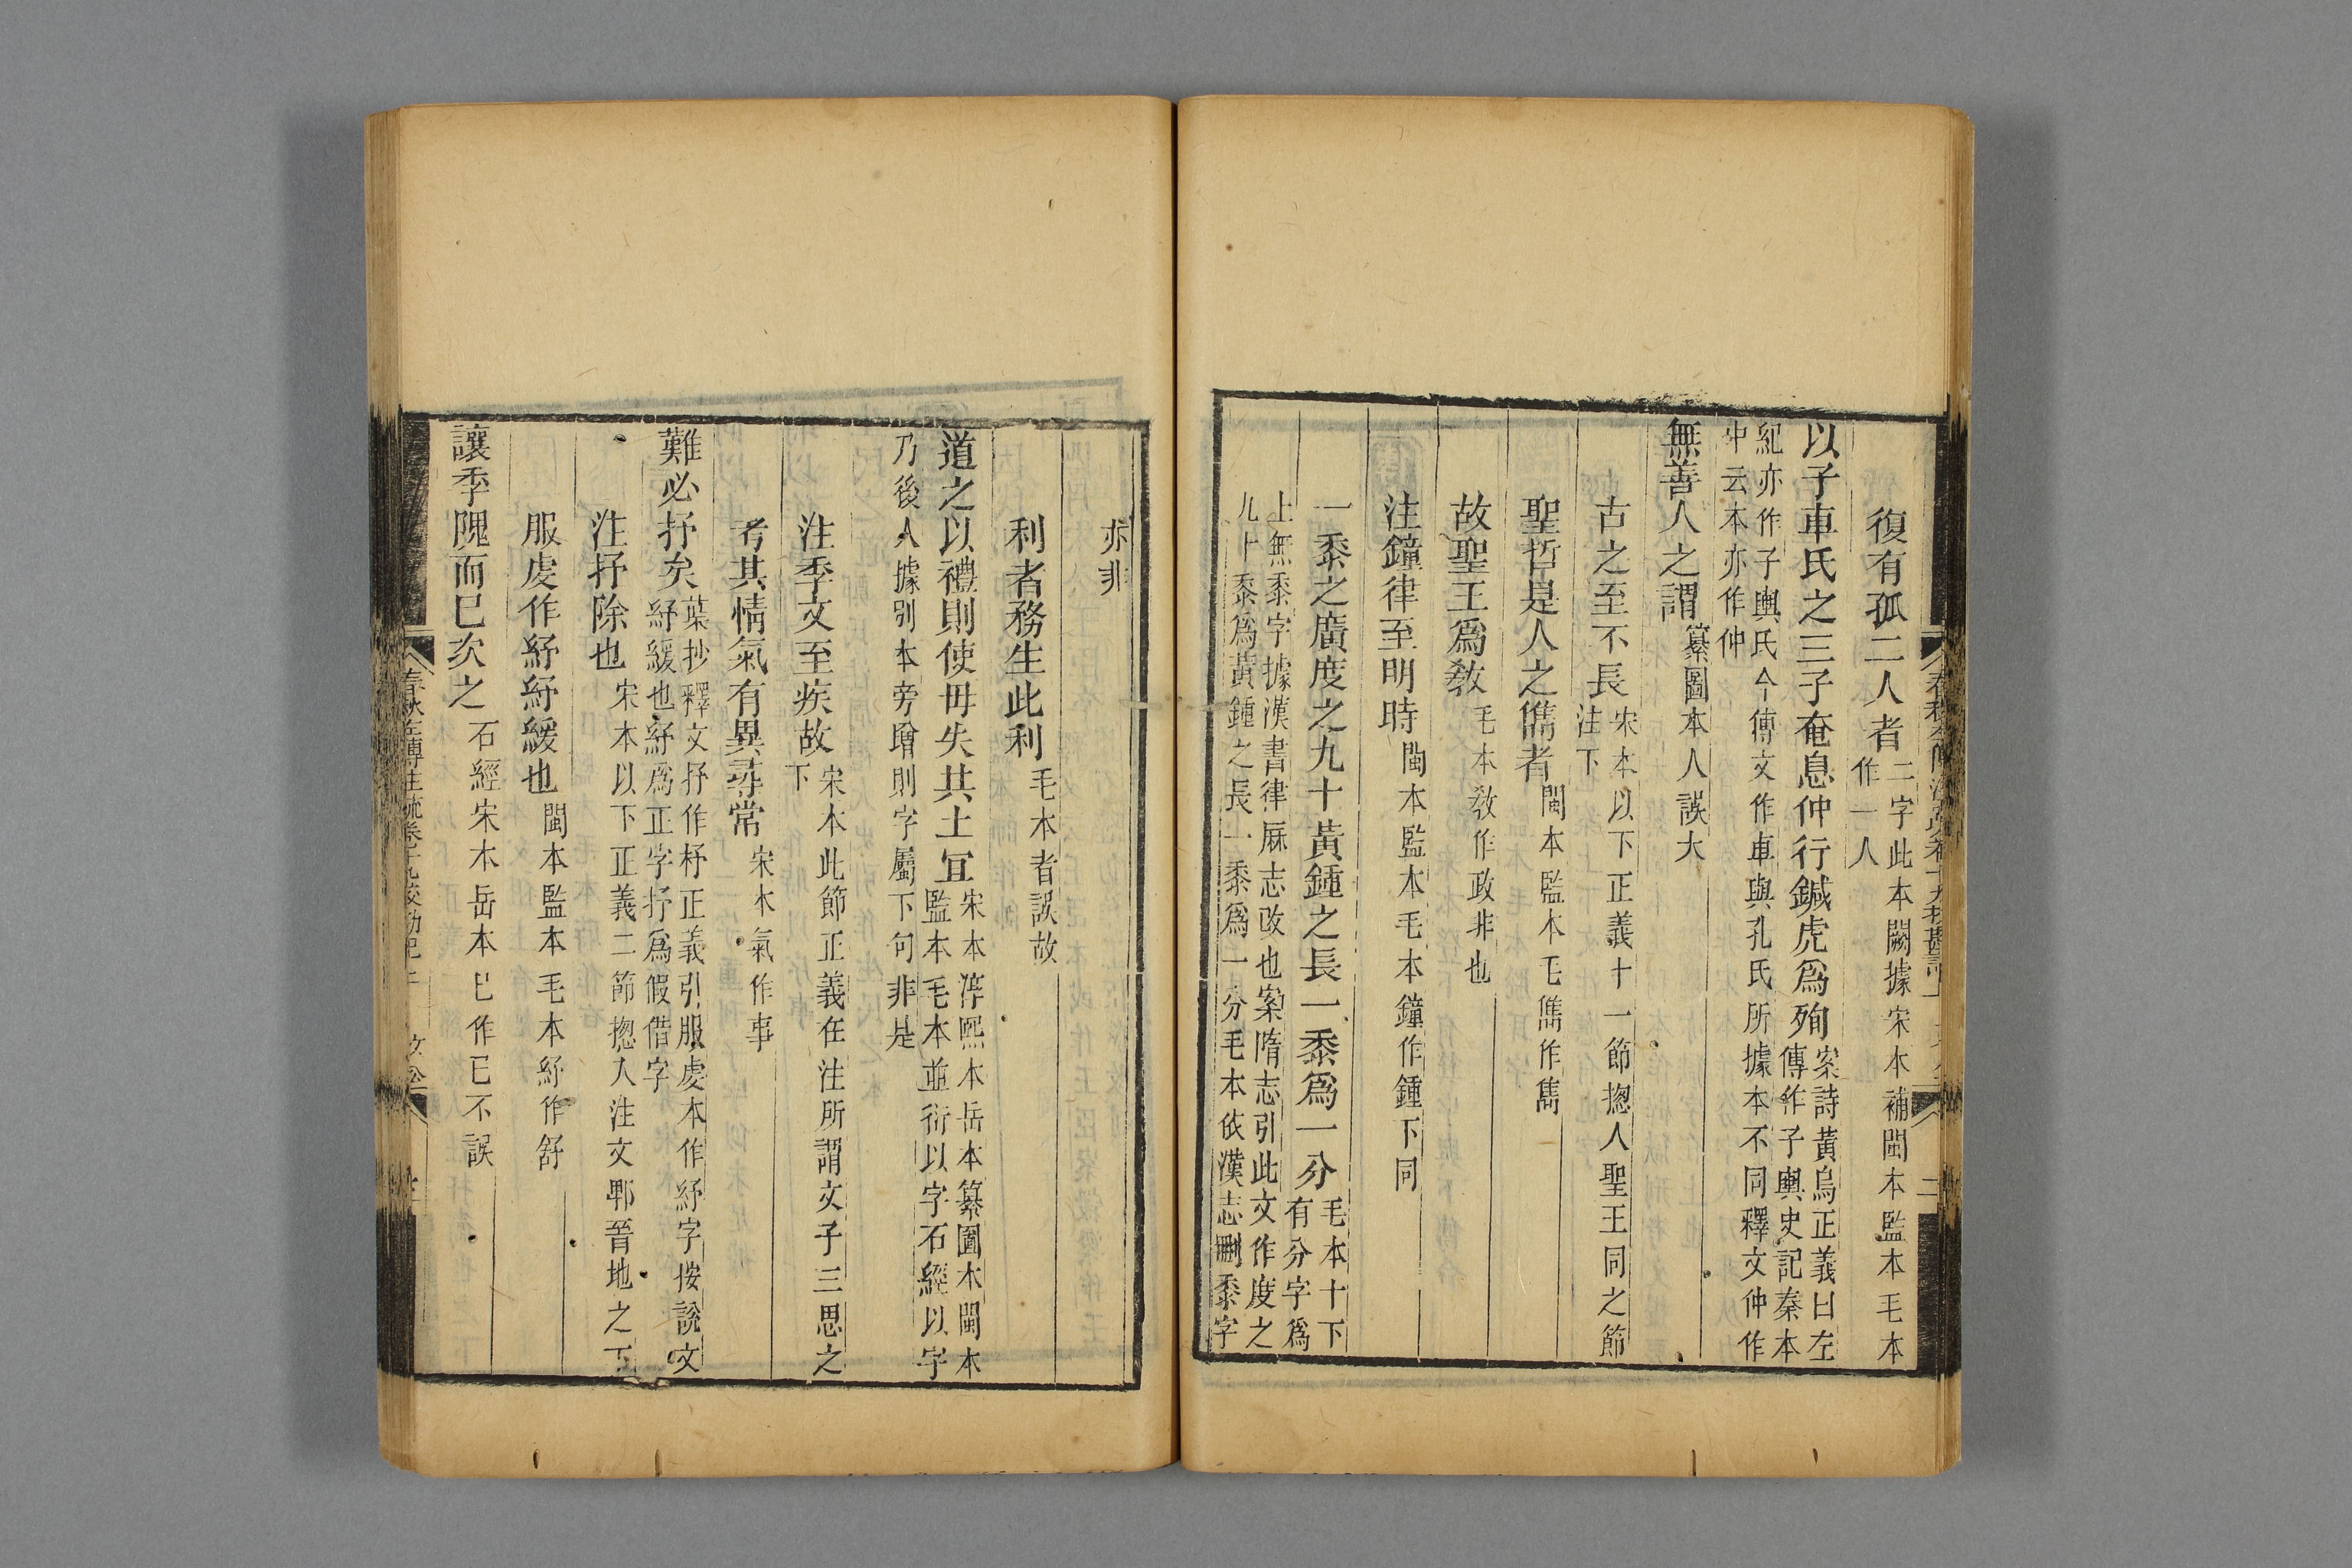 復有孤二人者二字此本闕據宋本補閩本監本毛本作一人
以子車氏之三子奄息仲行鍼虎爲殉案詩黃鳥正義曰左傳作子輿史記秦本
紀亦作子輿氏今傳文作車與孔氏所據本不同釋文仲作中云本亦作仲
無善人之謂纂圖本人誤大
古之至不長宋本以下正義十一節揔入聖王同之節注下
聖哲是人之儁者閩本監本毛儁作雋
故聖王爲教毛本敎作政非也
注鐘律至明時閩本監本毛本鐘作鍾下同
一黍之廣度之九十黃鍾之長一黍爲一分毛本十下有分字爲
上無黍字據漢書律厤志改也案隋志引此文作度之九十黍爲黃鍾之長一黍爲一分毛本依漢志刪黍字
亦非
利者務生此利毛本者誤故
道之以禮則使毋失其土宜宋本淳熙本岳本纂圖本閩本監本毛本並衍以字石經以字
乃後人據別本旁增則字屬下句非是
注季文至疾故宋本此節正義在注所謂文子三思之下
考其情氣有異尋常宋本氣作事
難必抒矣葉抄釋文抒作杼正義引服虔本作紓字按說文紓緩也紓爲正字抒爲假借字
注抒除也宋本以下正義二節揔入注文鄆晉地之下
服虔作紓紓緩也閩本監本毛本紓作舒
讓季隗而已次之石經宋本岳本已作巳不誤
春秋左傳注疏卷十九校勘記上